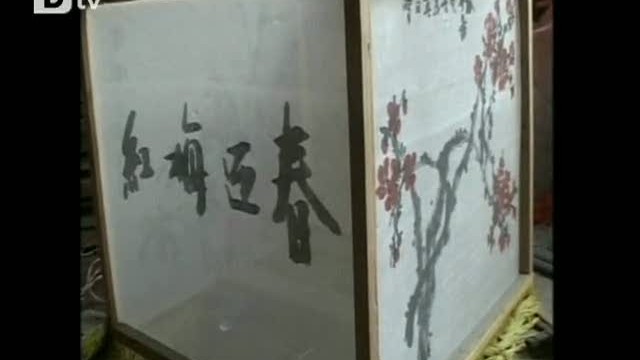 Dtv
紅梅迎春